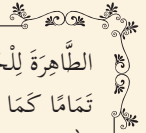 الطَّاهِرَةَ
تَمَامًا كَمَا